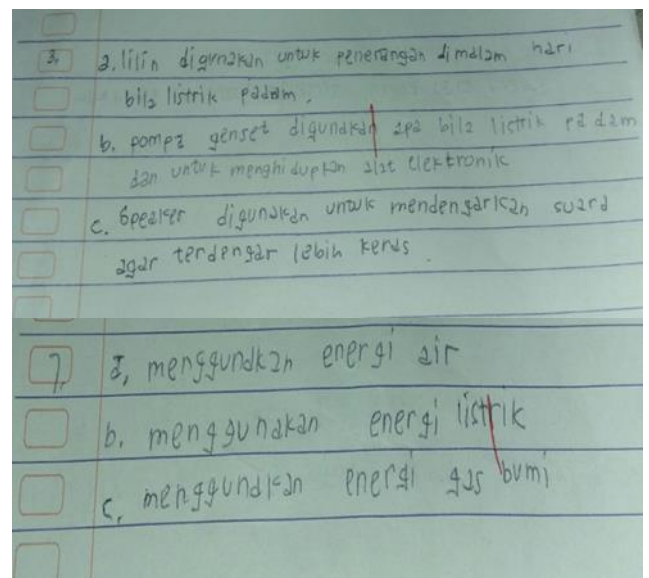 3. a. lilin digunakan untuk penerangan dimalam hari
bila listrik padam.
b. pompa genset digunakan apa bila listrik padam
dan untuk menghidupkan alat elektronik
c. Speaker digunakan untuk mendengarkan suara
agar terdengar lebih keras.
7. a, menggunakan energi air
b. menggunakan energi listrik
c, menggunakan energi gas bumi